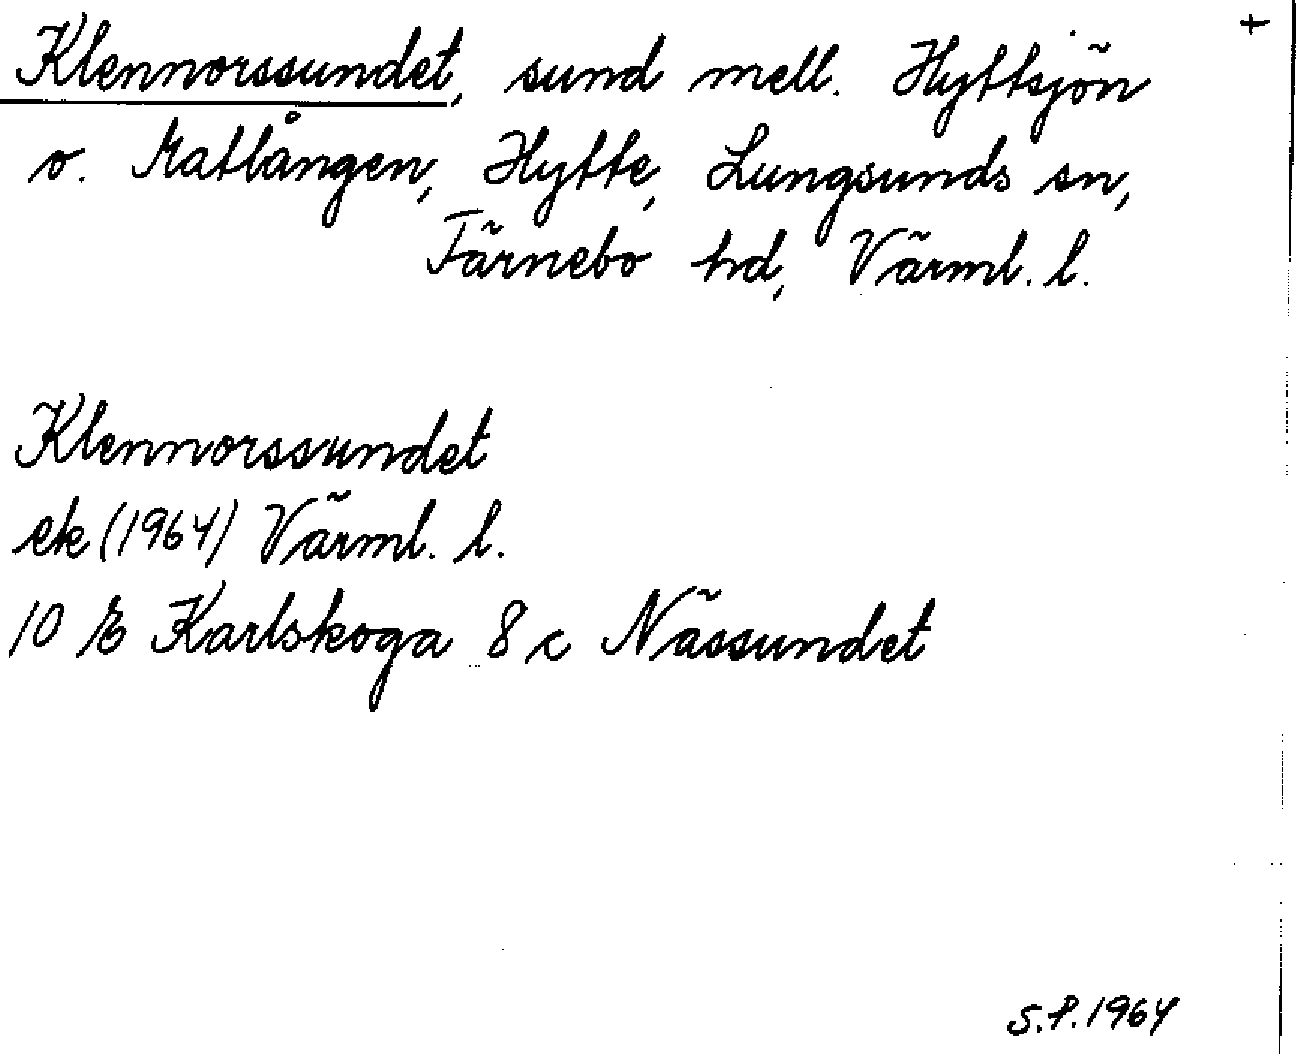 +
Klennorssundet, sund mell. Hyttsjön
o. Matlången, Hytte, Lungsunds sn,
Färnebo hd, Värml. l.
Klennorssundet
ek (1964) Värml. l.
10 E Karlskoga 8 c Nässundet
S.P. 1964